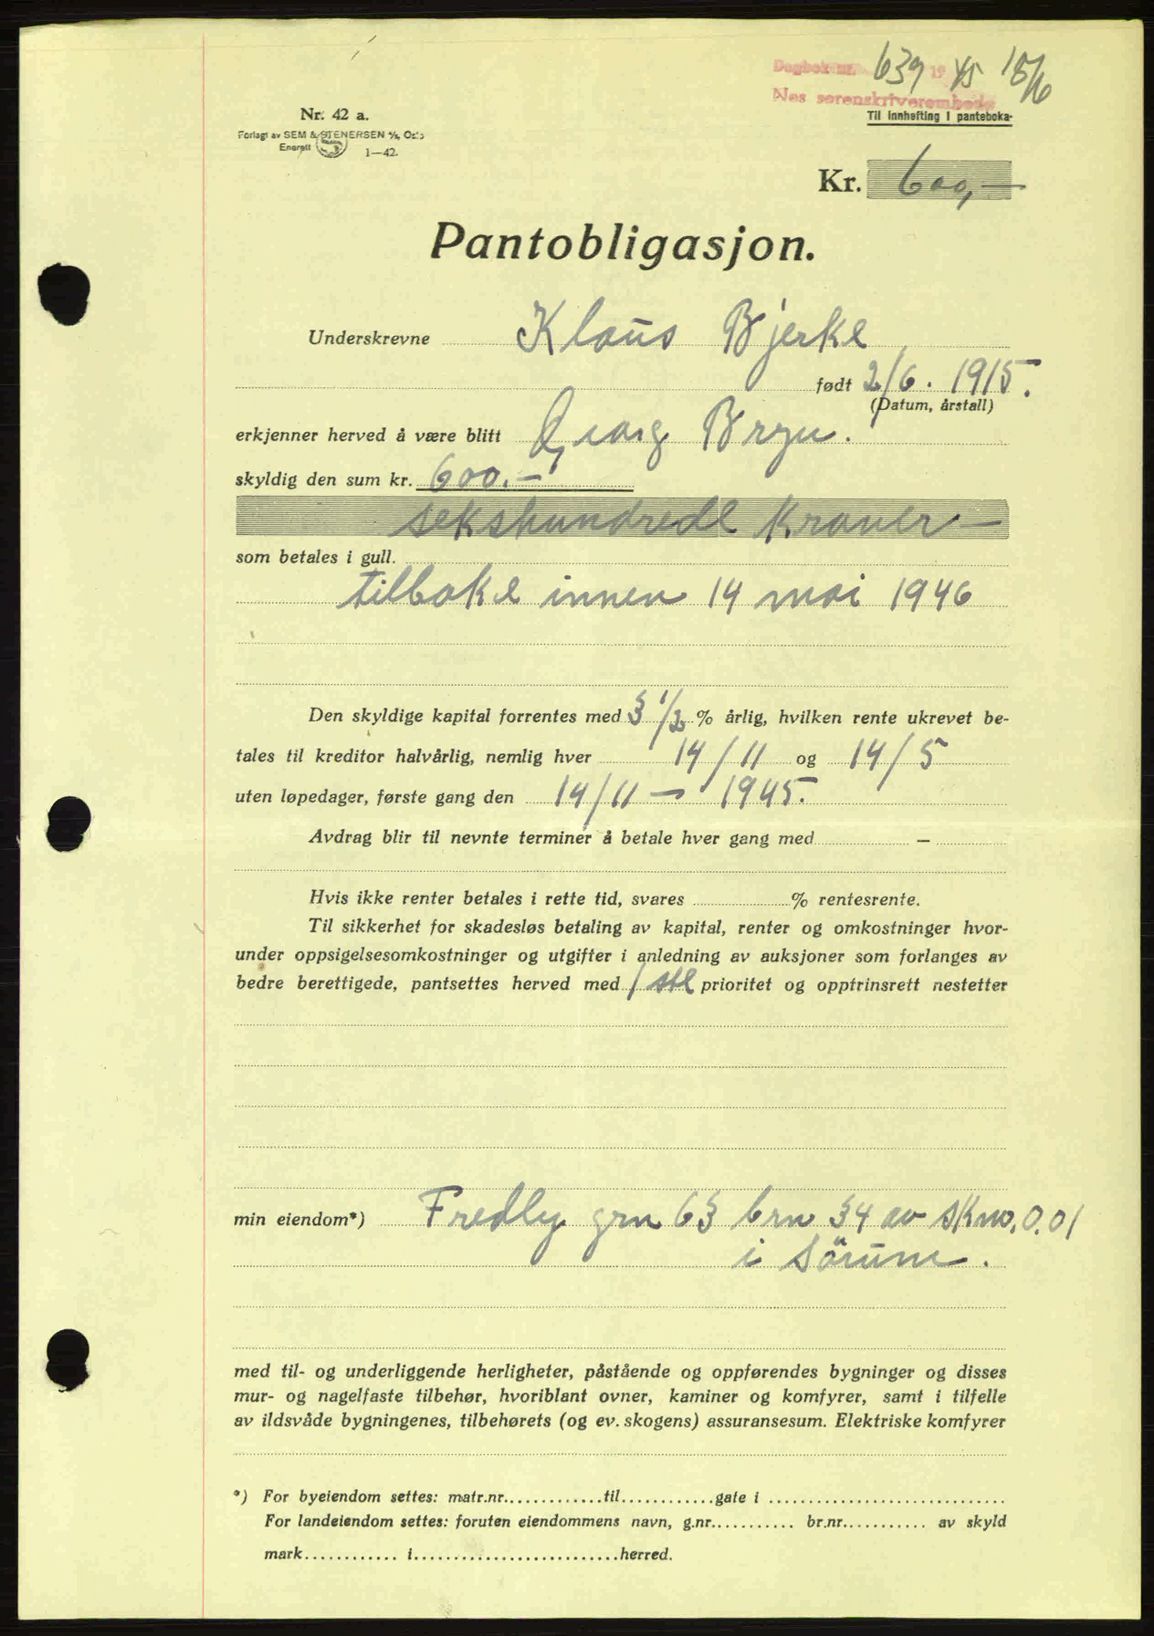 Dagbok nr. 639 19 45 15/6
Nes sorenskriverembede
Til innhefting i panteboka
Nr. 42 a.
Forlagt av SEM & STENERSEN A/S, Oslo
Enerett 1—42.
Kr. 600,—
Pantobligasjon.
Underskrevne Klaus Bjerke
født 2/6. 1915.
(Datum, årstall)
erkjenner herved å være blitt Georg Bryn.
skyldig den sum kr. 600.—
sekshundrede kroner —
som betales i gull.
tilbake innen 14 mai 1946
Den skyldige kapital forrentes med 3 1/2 % årlig, hvilken rente ukrevet be-
tales til kreditor halvårlig, nemlig hver 14/11 og 14/5
uten løpedager, første gang den 14/11 — 1945.
Avdrag blir til nevnte terminer å betale hver gang med —
Hvis ikke renter betales i rette tid, svares % rentesrente.
Til sikkerhet for skadesløs betaling av kapital, renter og omkostninger hvor-
under oppsigelsesomkostninger og utgifter i anledning av auksjoner som forlanges av
bedre berettigede, pantsettes herved med 1ste prioritet og opptrinsrett nestetter
min eiendom*) Fredly grn 63 brn 34 av skm. 0.01
i Sörum.
med til- og underliggende herligheter, påstående og oppførendes bygninger og disses
mur- og nagelfaste tilbehør, hvoriblant ovner, kaminer og komfyrer, samt i tilfelle
av ildsvåde bygningenes, tilbehørets (og ev. skogens) assuransesum. Elektriske komfyrer
*) For byeiendom settes: matr.nr.............til............gate i ..............................
For landeiendom settes: foruten eiendommens navn, g.nr........... br.nr........... av skyld
mark............ i..........................herred.